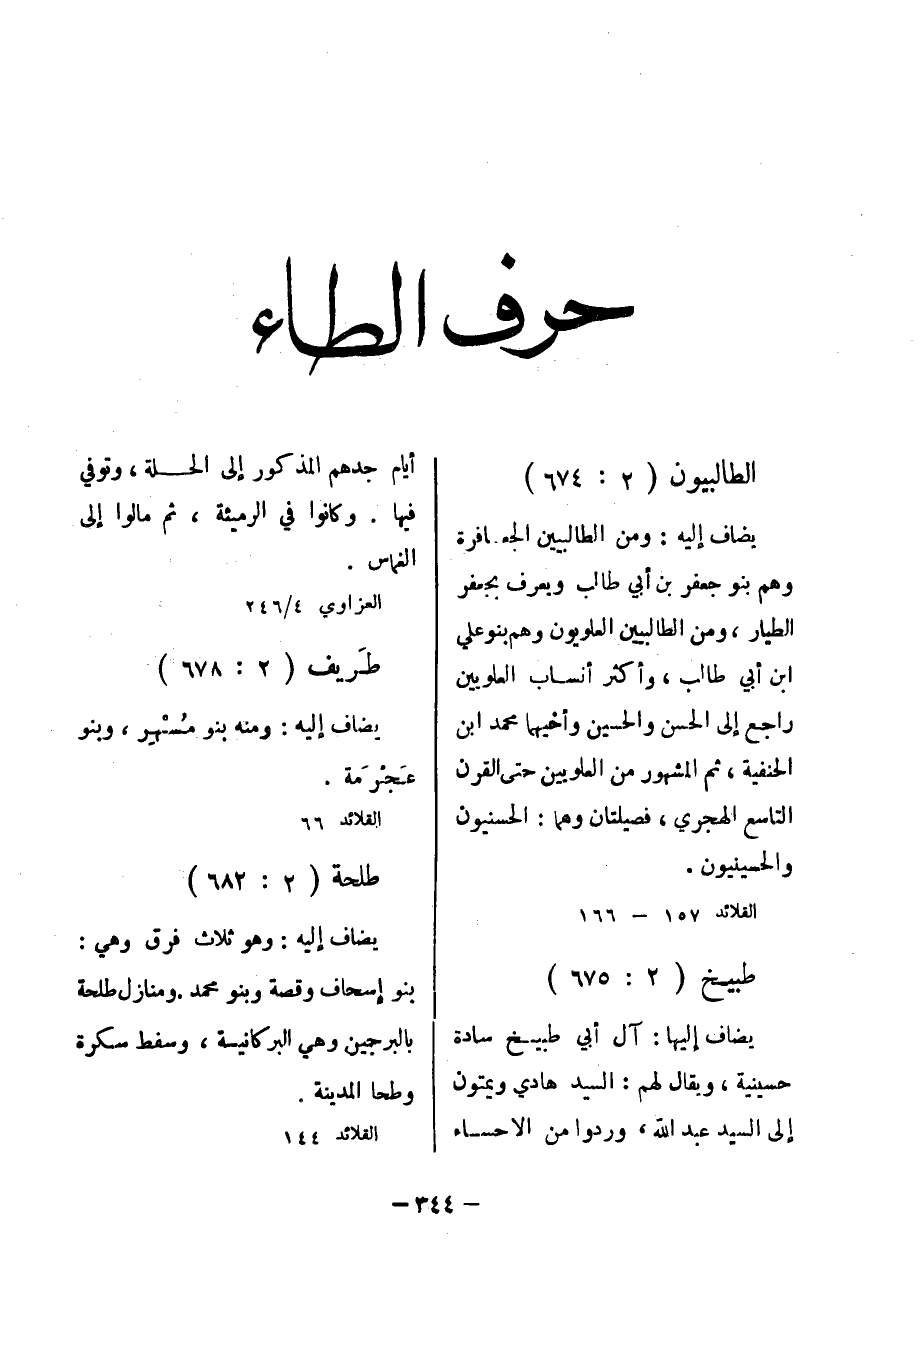 حرف الطاء
الطالبيون ( ٢ : ٦٧٤ )
يضاف إليه : ومن الطالبيين الجعـافرة
وهم بنو جعفر بن أبي طالب ويعرف بجعفر
الطيار ، ومن الطالبيين العلويون وهم بنو علي
ابن أبي طالب ، وأكثر أنساب العلويين
راجع إلى الحسن والحسين وأخيها محمد ابن
الحنفية ، ثم المشهور من العلويين حتى القرن
التاسع الهجري ، فصيلتان وهما : الحسنيون
والحسينيون .
القلائد ١٥٧ – ١٦٦
طبيخ ( ٢ : ٦٧٥ )
يضاف إليها : آل أبي طبيخ سادة
حسينية ، ويقال لهم : السيد هادي ويمتون
إلى السيد عبد الله ، وردوا من الاحساء
أيام جدهم المذكور إلى الحـلة ، وتوفي
فيها . وكانوا في الرميثة ، ثم مالوا إلى
الغماس .
العزاوي ٢٤٦/٤
طَريف ( ٢ : ٦٧٨ )
يضاف إليه : ومنه بنو مُسْهِر ، وبنو
عَجْرَمة .
القلائد ٦٦
طلحة ( ٢ : ٦٨٢ )
يضاف إليه : وهو ثلاث فرق وهي :
بنو إسحاف وقصة وبنو محمد . ومنازل طلحة
بالبرجين وهي البركانيسة ، وسفط سكرة
وطحا المدينة .
القلائد ١٤٤
– ٣٤٤ –